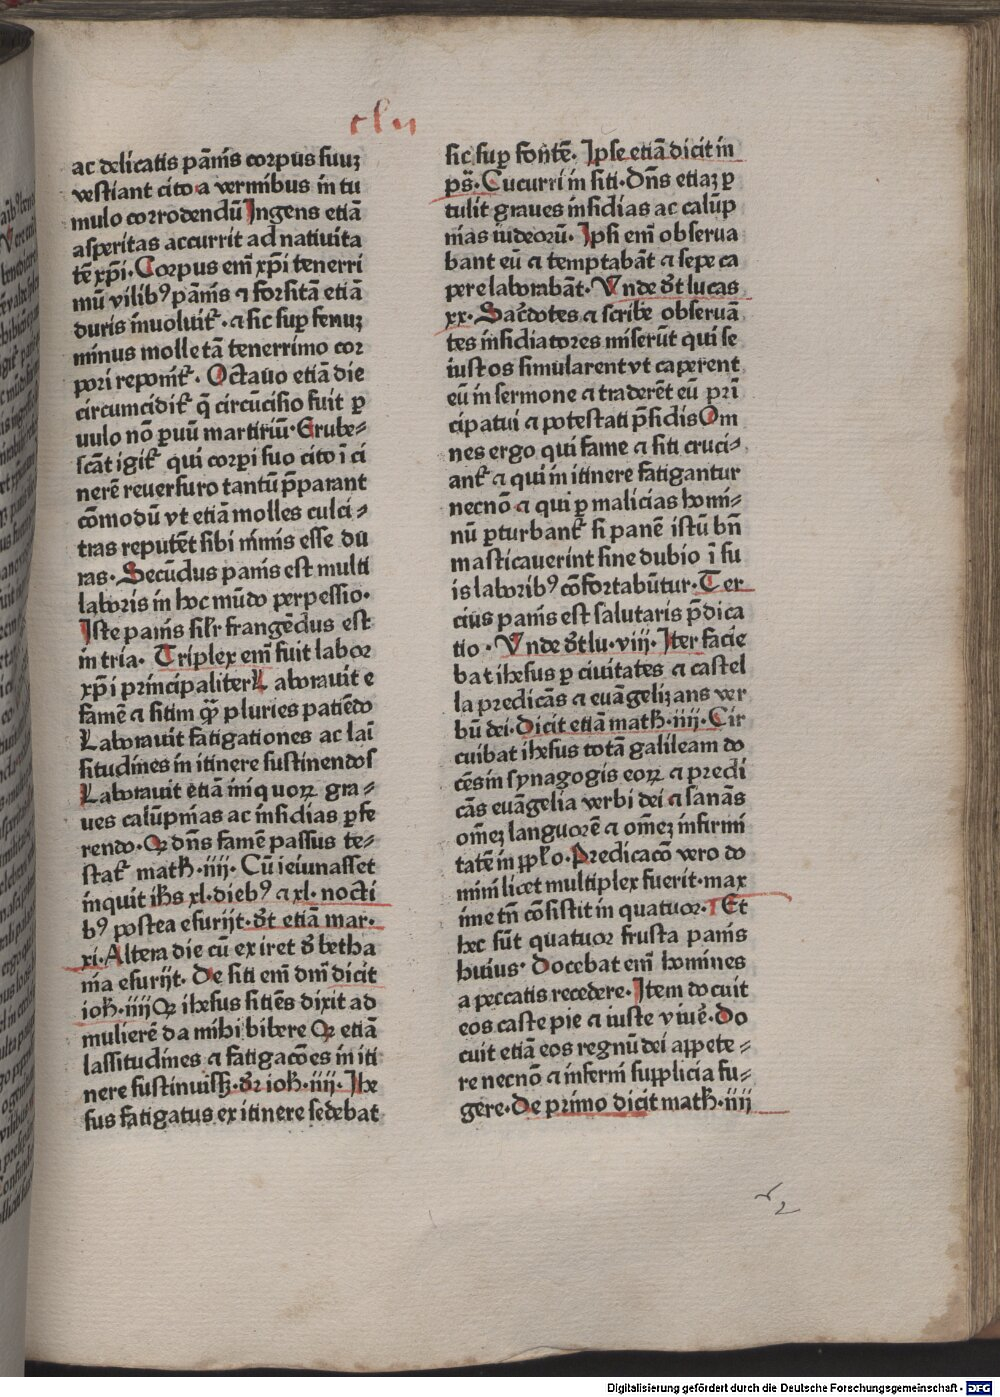 clii
ac delicatis pānis corpus suuꝫ
vestiant cito a vermibus in tu
mulo corrodendū Ingens etiā
asperitas accurrit ad natiuita
tē xp̄i. Corpus em̄ xp̄i tenerri
mū vilibꝰ pānis ⁊ forsitā etiā
duris inuoluit᷑. ⁊ sic suꝑ fenuꝫ
minus molle tā tenerrimo cor
pori reponit᷑. Octauo etiā die
circumcidit᷑ q̄ circūcisio fuit ꝑ
uulo nō ꝑuū martiriū. Erube⸗
scāt igit᷑ qui corꝑi suo cito ī ci
nerē reuersuro tantū p̄parant
cōmodū vt etiā molles culci⸗
tras reputēt sibi nimis esse du
ras. Secūdus panis est multi
laboris in hoc mūdo perpessio.
Iste panis silr̄ frangēdus est
in tria. Triplex em̄ fuit labor
xp̄i principaliter Laborauit e
famē ⁊ sitim qꝫ̄ pluries patiēdo
Laborauit fatigationes ac laſ
situdines in itinere sustinendoſ
Laborauit etiā iniquoꝝ gra⸗
ues calūpnias ac insidias ꝑfe
rendo. Qꝫ dn̄s famē passus te⸗
stat᷑ math. iiii. Cū ieiunasset
inquit ihs xl. diebꝰ ⁊ xl. nocti
bꝰ postea esurijt. vt̄ etiā mar.
xi. Altera die cū exiret de betha
nia esurijt. De siti em̄ dn̄i dicit
ioh. iiii Qꝫ ihesus sitiēs dixit ad
mulierē da mihi bibere Qꝫ etiā
lassitudines ⁊ fatigacōes in iti
nere sustinuisꝫ. vt̄ ioh. iiii. Ihe
sus fatigatus ex itinere sedebat
sic suꝑ fontē. Ipse etiā dicit in
ps̄. Cucurri in siti. Dn̄s etiaꝫ ꝑ
tulit graues insidias ac calūp
nias iudeorū. Ipsi em̄ obserua
bant eū ⁊ temptabāt ⁊ sepe ca
pere laborabāt. Vnde vt̄ lucas
xx. Sac̄dotes ⁊ scribe obseruā
tes insidiatores miserūt qui se
iustos simularent vt caperent
eū in sermone ⁊ traderēt eū prī
cipatui ⁊ potestati p̄sidis Om
nes ergo qui fame ⁊ siti cruci⸗
ant᷑ ⁊ qui in itinere fatigantur
necnō ⁊ qui ꝑ malicias homi⸗
nū ꝑturbant᷑ si panē istū bn̄
masticauerint sine dubio ī su
is laboribꝰ cōfortabūtur. Ter
cius panis est salutaris p̄dica
tio. Vnde vt̄ lu. viij. Iter facie
bat ihesus ꝑ ciuitates ⁊ castel
la predicās ⁊ euāgelizans ver
bū dei. Dicit etiā math. iiii. Cir
cuibat ihesus totā galileam do
cēs in synagogis eoꝝ ⁊ predi
cās euāgelia verbi dei ⁊ sanās
omēꝫ languorē ⁊ omēꝫ infirmi
tatē in pp̄lo. Predicacō vero do
mini licet multiplex fuerit. max
ime tn̄ cōsistit in quatuor. Et
hec sūt quatuor frusta panis
huius. Docebat em̄ homines
a peccatis recedere. Item docuit
eos caste pie ⁊ iuste viuē. Do
cuit etiam eos regnū dei appete⸗
re necnō ⁊ inferni supplicia fu⸗
gere. De primo dicit math. iiii
r 2
Digitalisierung gefördert durch die Deutsche Forschungsgemeinschaft - DFG